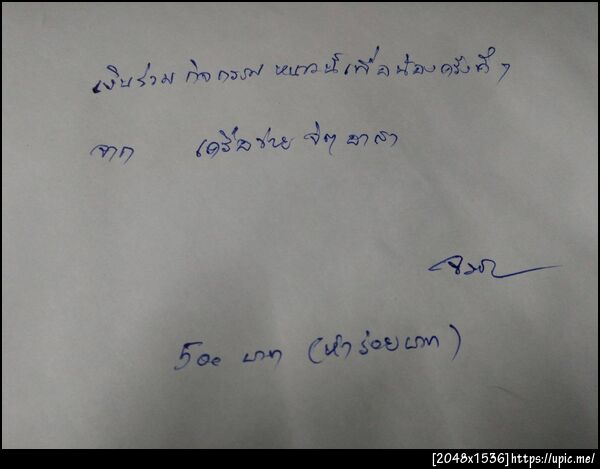 เงินร่วม กิจกรรม หนาวนี้เพื่อน้องครั้งที่ ๆ
จาก เครือข่าย จิตอาสา
500 บาท (ห้าร้อยบาท)
[2048x1536]https://upic.me/